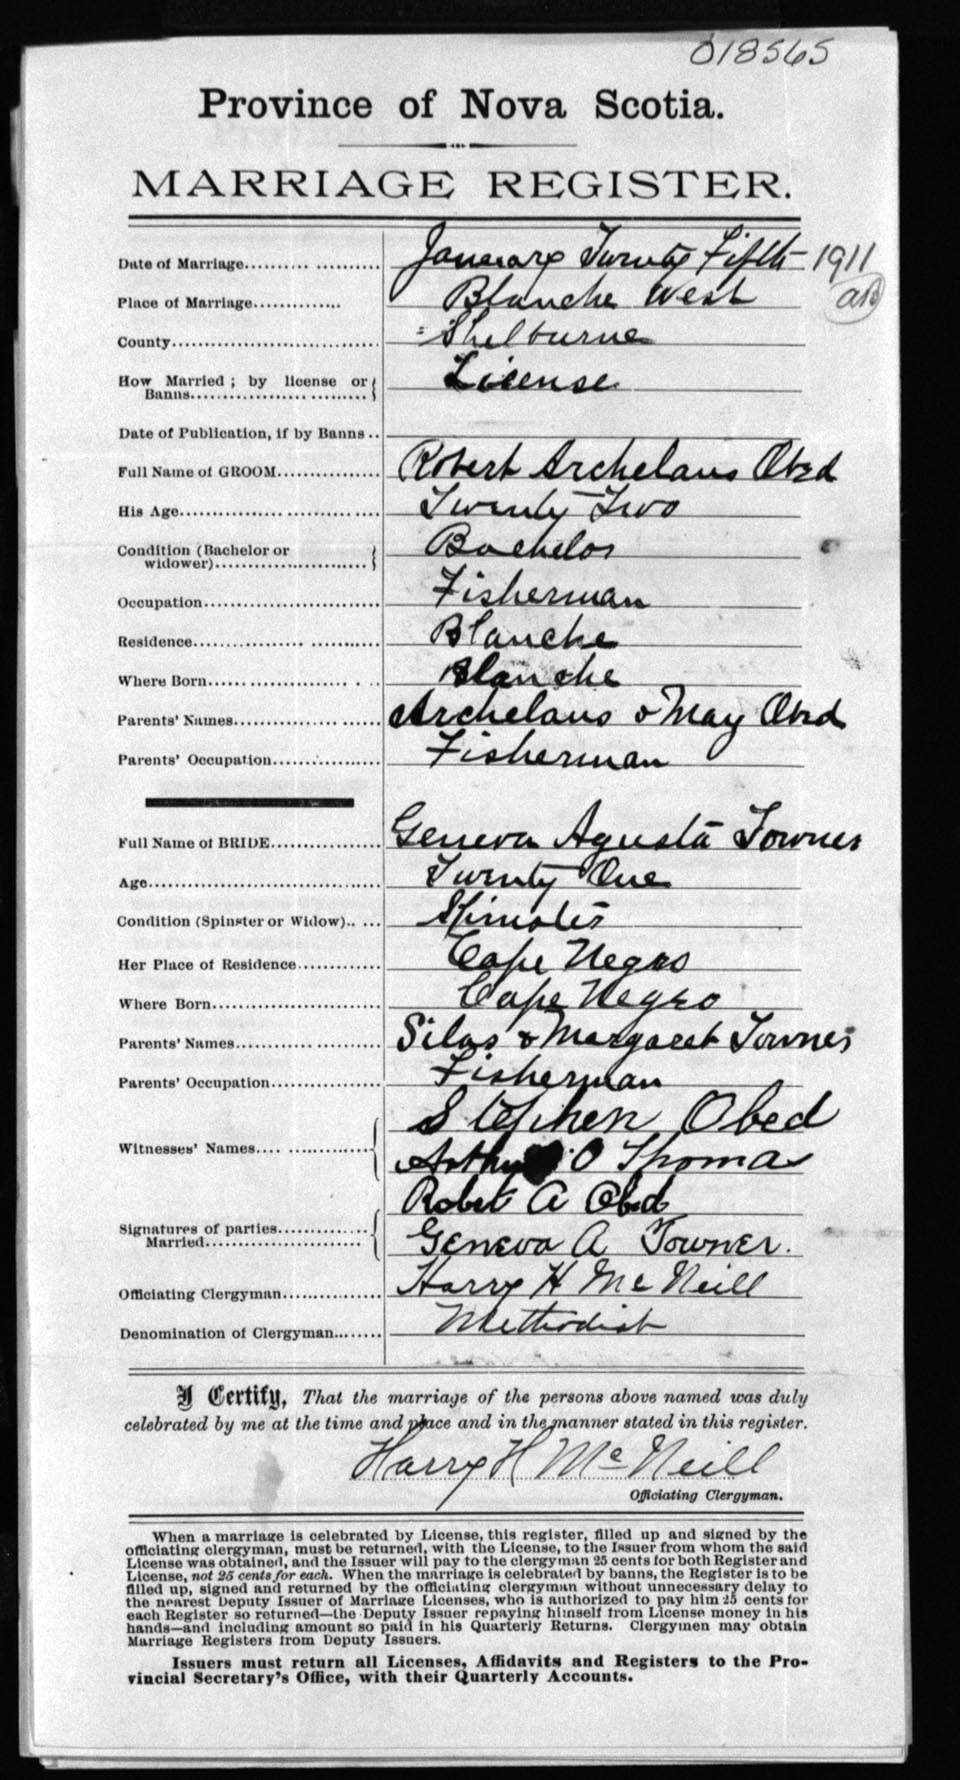 018565
Province of Nova Scotia.
MARRIAGE REGISTER.
Date of Marriage.......... ........... January Twenty Fifth 1911
Place of Marriage............. Blanche West
County............................... Shelburne
How Married ; by license or License
Banns..............................
Date of Publication, if by Banns ..
Full Name of GROOM............... Robert Archelaus Obed
His Age............................. Twenty Two
Condition (Bachelor or Bachelor
widower)..........................
Occupation.......................... Fisherman
Residence........................... Blanche
Where Born.......................... Blanche
Parents' Names...................... Archelaus & May Obed
Parents' Occupation................. Fisherman
Full Name of BRIDE................ Geneva Agusta Towner
Age................................. Twenty One
Condition (Spinster or Widow).. ...
Her Place of Residence............ Cape Negro
Where Born......................... Cape Negro
Parents' Names...................... Silas & Margaret Towner
Parents' Occupation................ Fisherman
Stephen Obed
Witnesses' Names.... .............. O Thomas
Robert A Obed
Signatures of parties..............
Married........................ Geneva A Towner.
Officiating Clergyman............... Harry H McNeill
Denomination of Clergyman........ Methodist
I Certify, That the marriage of the persons above named was duly
celebrated by me at the time and place and in the manner stated in this register.
Harry H McNeill
Officiating Clergyman.
When a marriage is celebrated by License, this register, filled up and signed by the
officiating clergyman, must be returned, with the License, to the Issuer from whom the said
License was obtained, and the Issuer will pay to the clergyman 25 cents for both Register and
License, not 25 cents for each. When the marriage is celebrated by banns, the Register is to be
filled up, signed and returned by the officiating clergyman without unnecessary delay to
the nearest Deputy Issuer of Marriage Licenses, who is authorized to pay him 25 cents for
each Register so returned—the Deputy Issuer repaying himself from License money in his
hands—and including amount so paid in his Quarterly Returns. Clergymen may obtain
Marriage Registers from Deputy Issuers.
Issuers must return all Licenses, Affidavits and Registers to the Pro-
vincial Secretary's Office, with their Quarterly Accounts.